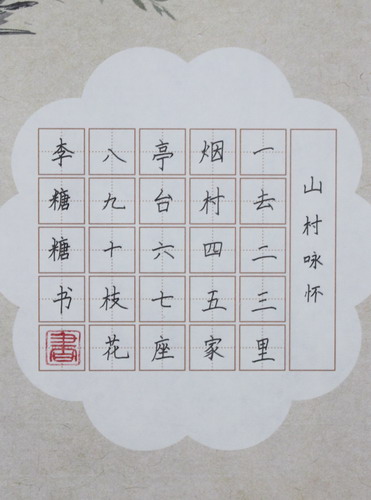 山村咏怀
一去二三里
烟村四五家
亭台六七座
八九十枝花
李糖糖书
書